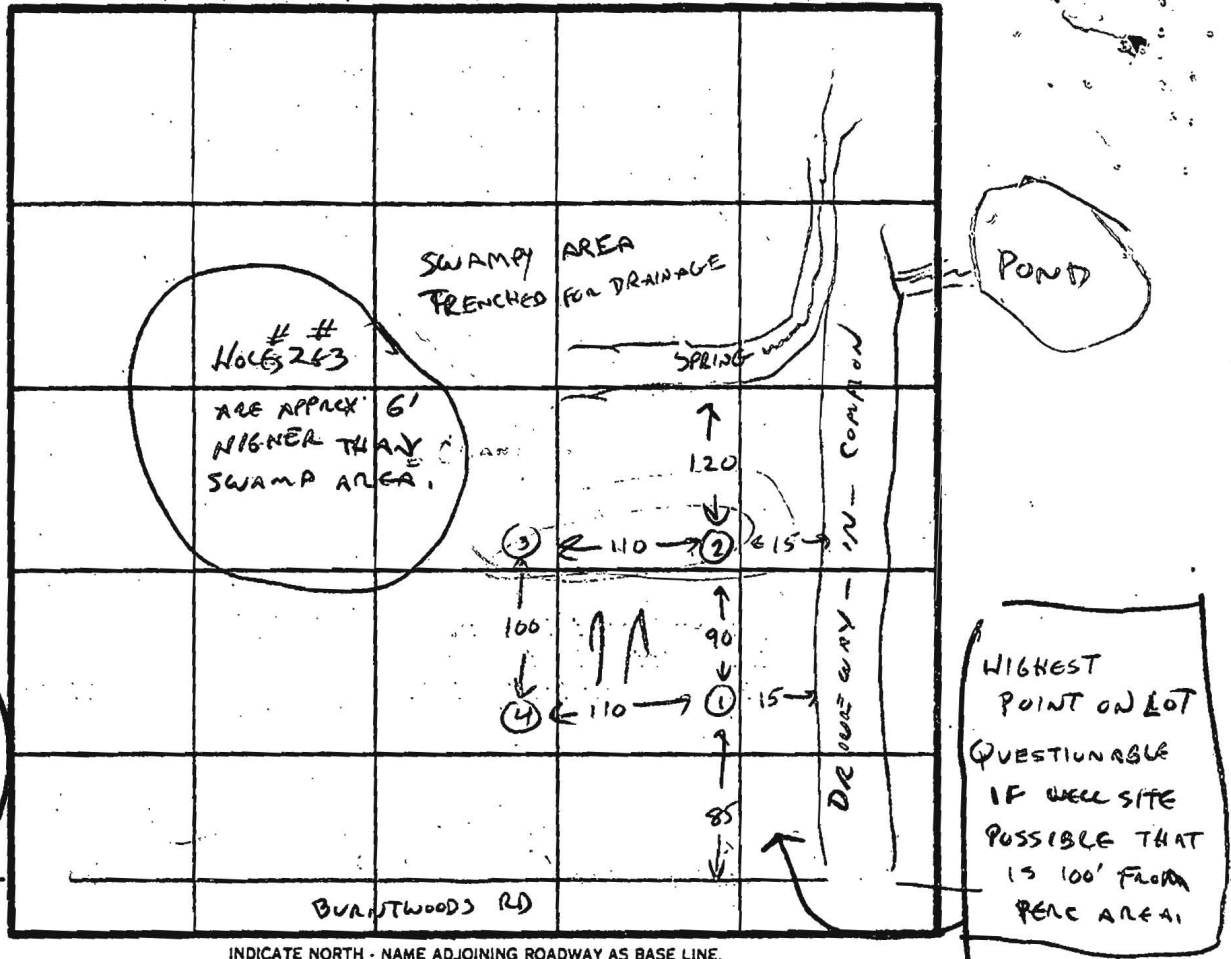 SWAMPY AREA
TRENCHED FOR DRAINAGE
POND
HOLES #2 & #3
ARE APPROX 6'
HIGHER THAN
SWAMP AREA.
SPRING
120
③ 110 ② 15
100
90
④ 110 ① 15
85
DRIVEWAY - IN - COMMON
HIGHEST
POINT ON LOT
QUESTIONABLE
IF WELL SITE
POSSIBLE THAT
IS 100' FROM
PERC AREA.
BURNTWOODS RD
INDICATE NORTH - NAME ADJOINING ROADWAY AS BASE LINE.